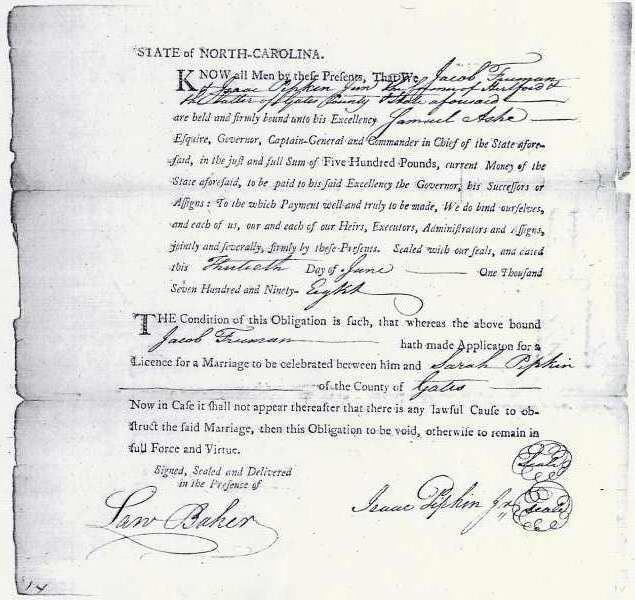 STATE of NORTH-CAROLINA.
KNOW all Men by these Presents, That We Jacob Fruman
& Isaac Pipkin Junr the former of Hertford &
the Latter of Gates County & State aforesaid
are held and firmly bound unto his Excellency Samuel Ashe
Esquire, Governor, Captain-General and Commander in Chief of the State afore-
said, in the just and full Sum of Five Hundred Pounds, current Money of the
State aforesaid, to be paid to his said Excellency the Governor, his Successors or
Assigns: To the which Payment well and truly to be made, We do bind ourselves,
and each of us, our and each of our Heirs, Executors, Administrators and Assigns,
jointly and severally, firmly by these Presents. Sealed with our seals, and dated
this Thirtieth Day of June One Thousand
Seven Hundred and Ninety-Eight
THE Condition of this Obligation is such, that whereas the above bound
Jacob Fruman hath made Applicaton for a
Licence for a Marriage to be celebrated between him and Sarah Pipkin
of the County of Gates
Now in Case it shall not appear thereafter that there is any lawful Cause to ob-
struct the said Marriage, then this Obligation to be void, otherwise to remain in
full Force and Virtue.
Signed, Sealed and Delivered
in the Presense of
Seal
Law Baker
Isaac Pipkin Jr
Seal